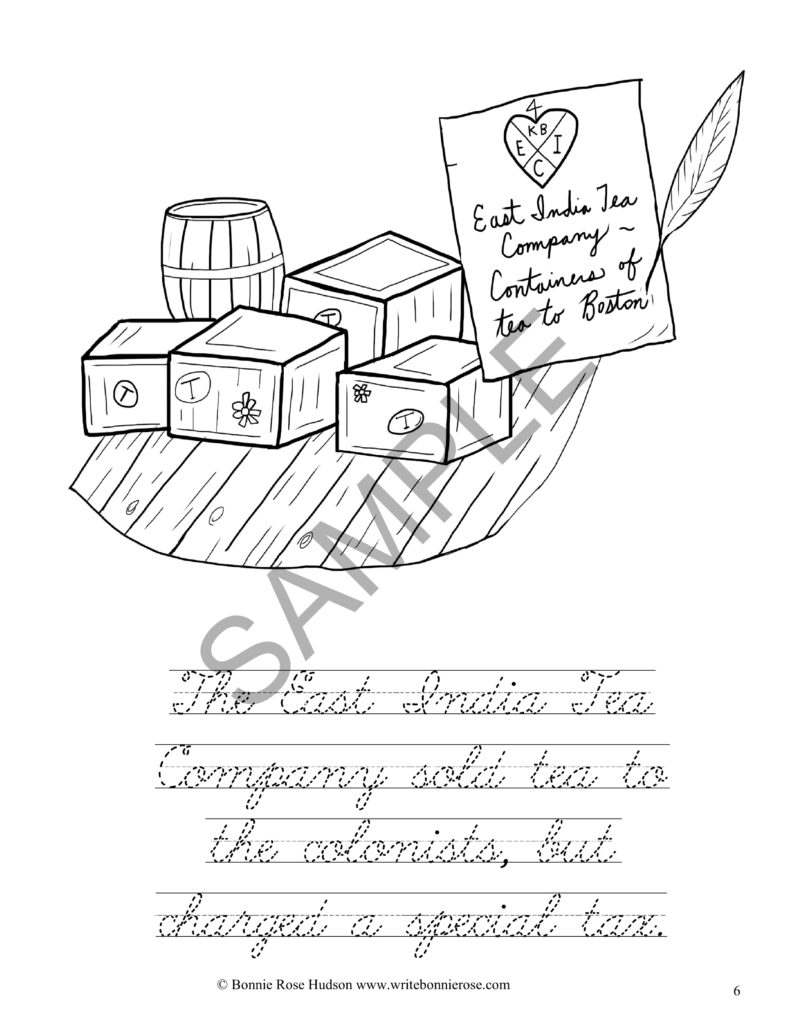 4
KB
E I
C
East India Tea
Company ~
Containers of
tea to Boston
T
T
T
T
SAMPLE
The East India Tea
Company sold tea to
the colonists, but
charged a special tax.
© Bonnie Rose Hudson www.writebonnierose.com
6